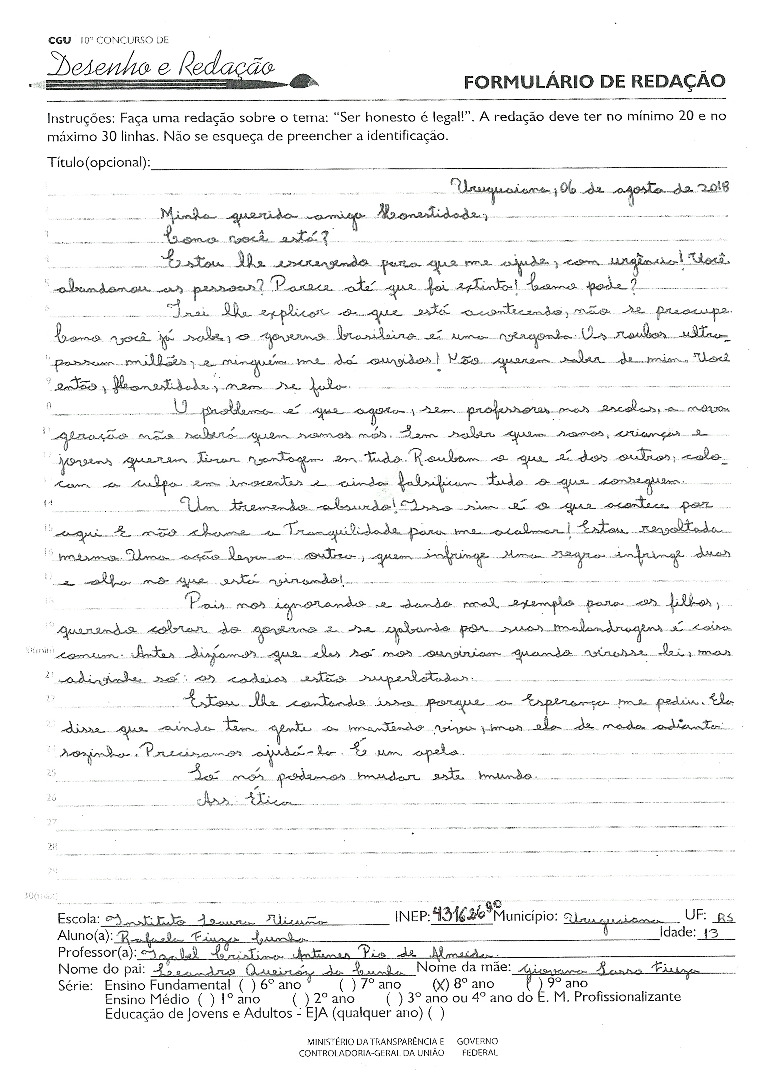 CGU 10º CONCURSO DE
Desenho e Redação
FORMULÁRIO DE REDAÇÃO
Instruções: Faça uma redação sobre o tema: "Ser honesto é legal!". A redação deve ter no mínimo 20 e no
máximo 30 linhas. Não se esqueça de preencher a identificação.
Título(opcional):
Uruguaiana, 06 de agosto de 2018
Minha querida amiga Honestidade,
Como você está?
Estou lhe escrevendo para que me ajude, com urgência! Você
abandonou as pessoas? Parece até que foi extinta! Como pode?
Irei lhe explicar o que está acontecendo, não se preocupe.
Como você já sabe, o governo brasileiro é uma vergonha. Os roubos ultra-
passam milhões, e ninguém me dá ouvidos! Não querem saber de mim. Você
então, Honestidade, nem se fala.
O problema é que agora, sem professores nas escolas, a nova
geração não saberá quem somos nós. Sem saber quem somos, crianças e
jovens querem tirar vantagem em tudo. Roubam o que é dos outros, colo-
cam a culpa em inocentes e ainda falsificam tudo o que conseguem.
14 Um tremendo absurdo! Isso sim é o que acontece por
aqui. E não chame a Tranquilidade para me acalmar! Estou revoltada
mesmo. Uma ação leva a outra, quem infringe uma regra infringe duas
e olha no que está virando!
Pais nos ignorando e dando mal exemplo para os filhos,
querendo cobrar do governo e se gabando por suas malandragens é coisa
comum. Antes dizíamos que eles só nos ouviriam quando virasse lei, mas
21 adivinhe só: as cadeias estão superlotadas.
Estou lhe contando isso porque a Esperança me pediu. Ela
disse que ainda tem gente a mantendo viva, mas ela de nada adianta
sozinha. Precisamos ajudá-la. É um apelo.
25 Só nós podemos mudar este mundo.
26 Ass. Ética
27
28
Escola: Instituto Laura Vicuña INEP: Município: Uruguaiana UF: RS
Aluno(a): Rafaela Fiuza Cunha Idade: 13
Professor(a): Izabel Cristina Antunes Pio de Almeida
Nome do pai: Leandro Queiróz da Cunha Nome da mãe: Giovana Fiuza
Série: Ensino Fundamental ( ) 6º ano ( ) 7º ano (X) 8º ano ( ) 9º ano
Ensino Médio ( ) 1º ano ( ) 2º ano ( ) 3º ano ou 4º ano do E. M. Profissionalizante
Educação de Jovens e Adultos - EJA (qualquer ano) ( )
MINISTÉRIO DA TRANSPARÊNCIA E GOVERNO
CONTROLADORIA-GERAL DA UNIÃO FEDERAL